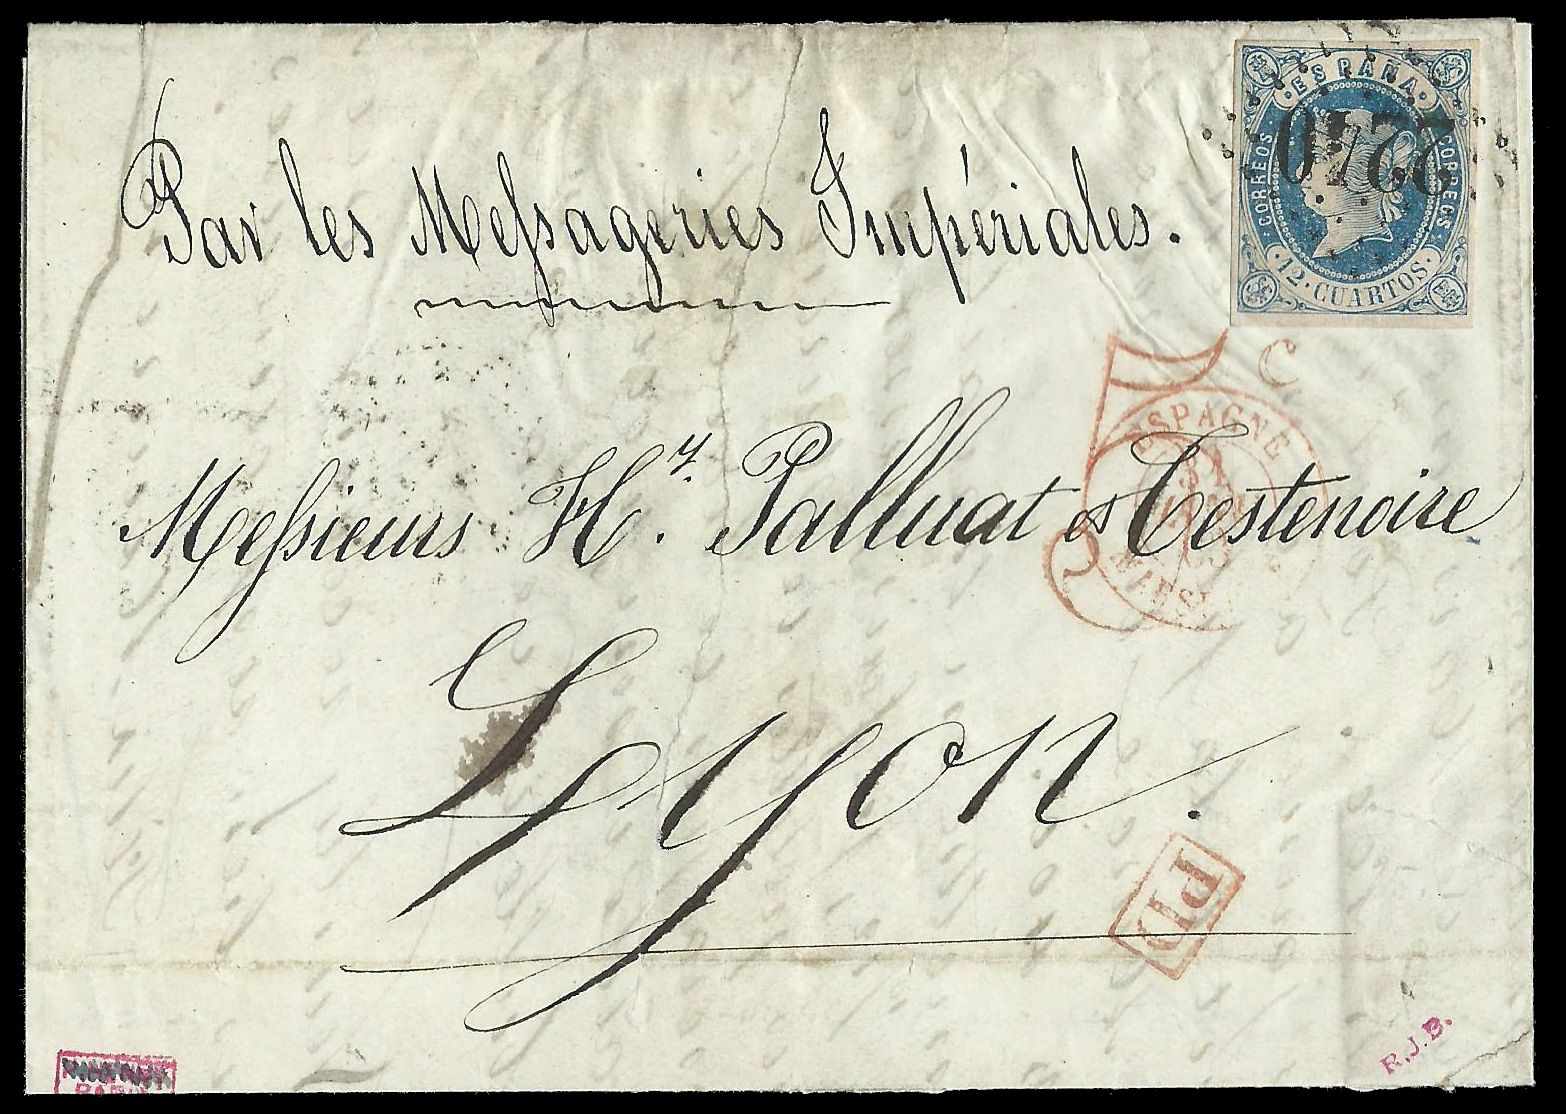 Par les Messageries Impériales.
· ESPAÑA ·
CORREOS
CORREOS
· 12 · CUARTOS ·
2240
C
ESPAGNE
Messieurs Hy. Palluat et Testenoire
Lyon.
PD
R.J.B.